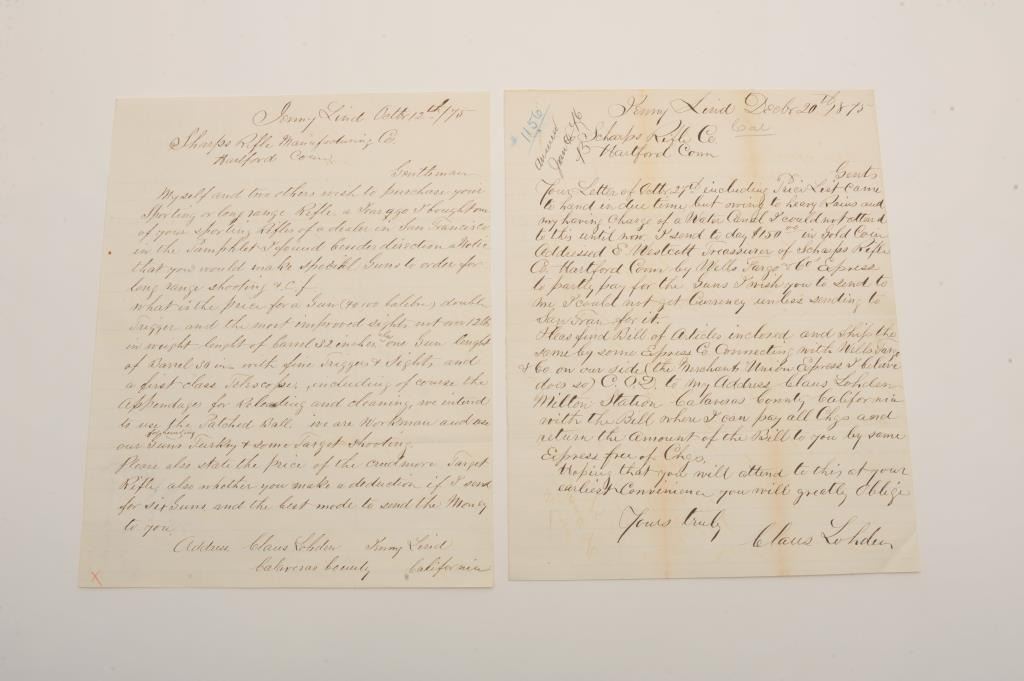 Jenny Lind Octbr 12th/75
Sharps Rifle Manufacturing Co.
Hartford Conn
Gentlemen
Myself and two others wish to purchase your
Sporting or long range Rifle, a Time ago I bought one
of your Sporting Rifles of a dealer in San Francisco
in the Pamphlet I found besides direction a Notice
that you would make special Guns to order for
long range shooting &.C.f
What is the price for a Gun (40 100 Calibre) double
Trigger and the most improved sights, not over 12 lb
in weight lenght of barrel 32 inches, one Gun lenght
of Barrel 30 in. with fine Trigger & Sights and
a first class Telescope, including of course the
Appendages for Reloading and cleaning, we intend
to use the Patched Ball. we are Workman and use
our Guns Turkey & some Target Shooting.
Please also state the price of the Creedmore Target
Rifle, also whether you make a deduction if I send
for six Guns and the best mode to send the Money
to you.
Address Claus Lohden Jenny Lind
Calaveras County California
X
Jenny Lind Decbr 20th 1875
Cal
1156
answered
Jan
Scharps Rifle Co.
Hartford Conn
Gents
Your Letter of Octbr 27th including Price List came
to hand in due time but owing to heavy Rains and
my having Charge of a Water Canal I could not attend
to this until now. I send to day $150 00 in Gold Coin
Addressed E. Westcott Treasurer of Scharps Rifle
Co. Hartford Conn by Wells Fargo & Co Express
to partly pay for the Guns I wish you to send to
me, I could not get Currency unless sending to
San Fran for it.
Pleas find Bill of Aticles inclosed and ship the
same by some Express Co. Connecting with Wells Fargo
& Co on our side (the Merchants Union Express I believe
does so) C.O.D. to my Address, Claus Lohden
Milton Station Calaveras County California
with the Bill where I can pay all Chgs and
return the Amount of the Bill to you by same
Express free of Chgs.
Hoping that you will attend to this at your
earliest Convenience you will greatly oblige
Yours truly
Claus Lohden